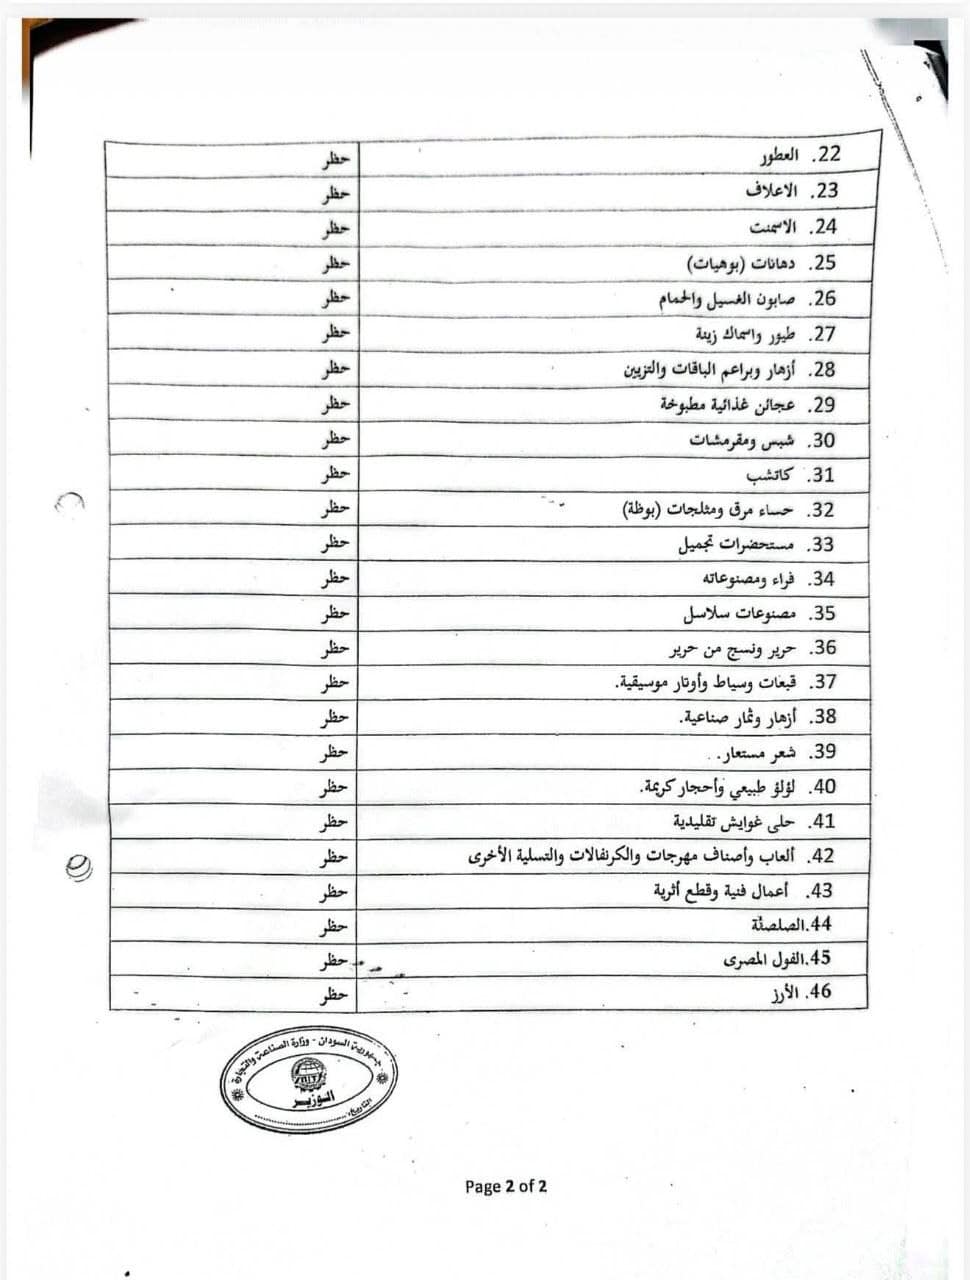 22. العطور حظر
23. الاعلاف حظر
24. الاسمنت حظر
25. دهانات (بوهيات) حظر
26. صابون الغسيل والحمام حظر
27. طيور واسماك زينة حظر
28. أزهار وبراعم الباقات والتزيين حظر
29. عجائن غذائية مطبوخة حظر
30. شبس ومقرمشات حظر
31. كاتشب حظر
32. حساء مرق ومثلجات (بوظة) حظر
33. مستحضرات تجميل حظر
34. فراء ومصنوعاته حظر
35. مصنوعات سلاسل حظر
36. حرير ونسج من حرير حظر
37. قبعات وسياط وأوتار موسيقية. حظر
38. أزهار وثمار صناعية. حظر
39. شعر مستعار. حظر
40. لؤلؤ طبيعي وأحجار كريمة. حظر
41. حلى غوايش تقليدية حظر
42. ألعاب وأصناف مهرجات والكرنفالات والتسلية الأخرى حظر
43. أعمال فنية وقطع أثرية حظر
44.الصلصئة حظر
45.الفول المصرى حظر
46. الأرز حظر
جمهورية السودان - وزارة الصناعة والتجارة
الوزير
التاريخ:
Page 2 of 2